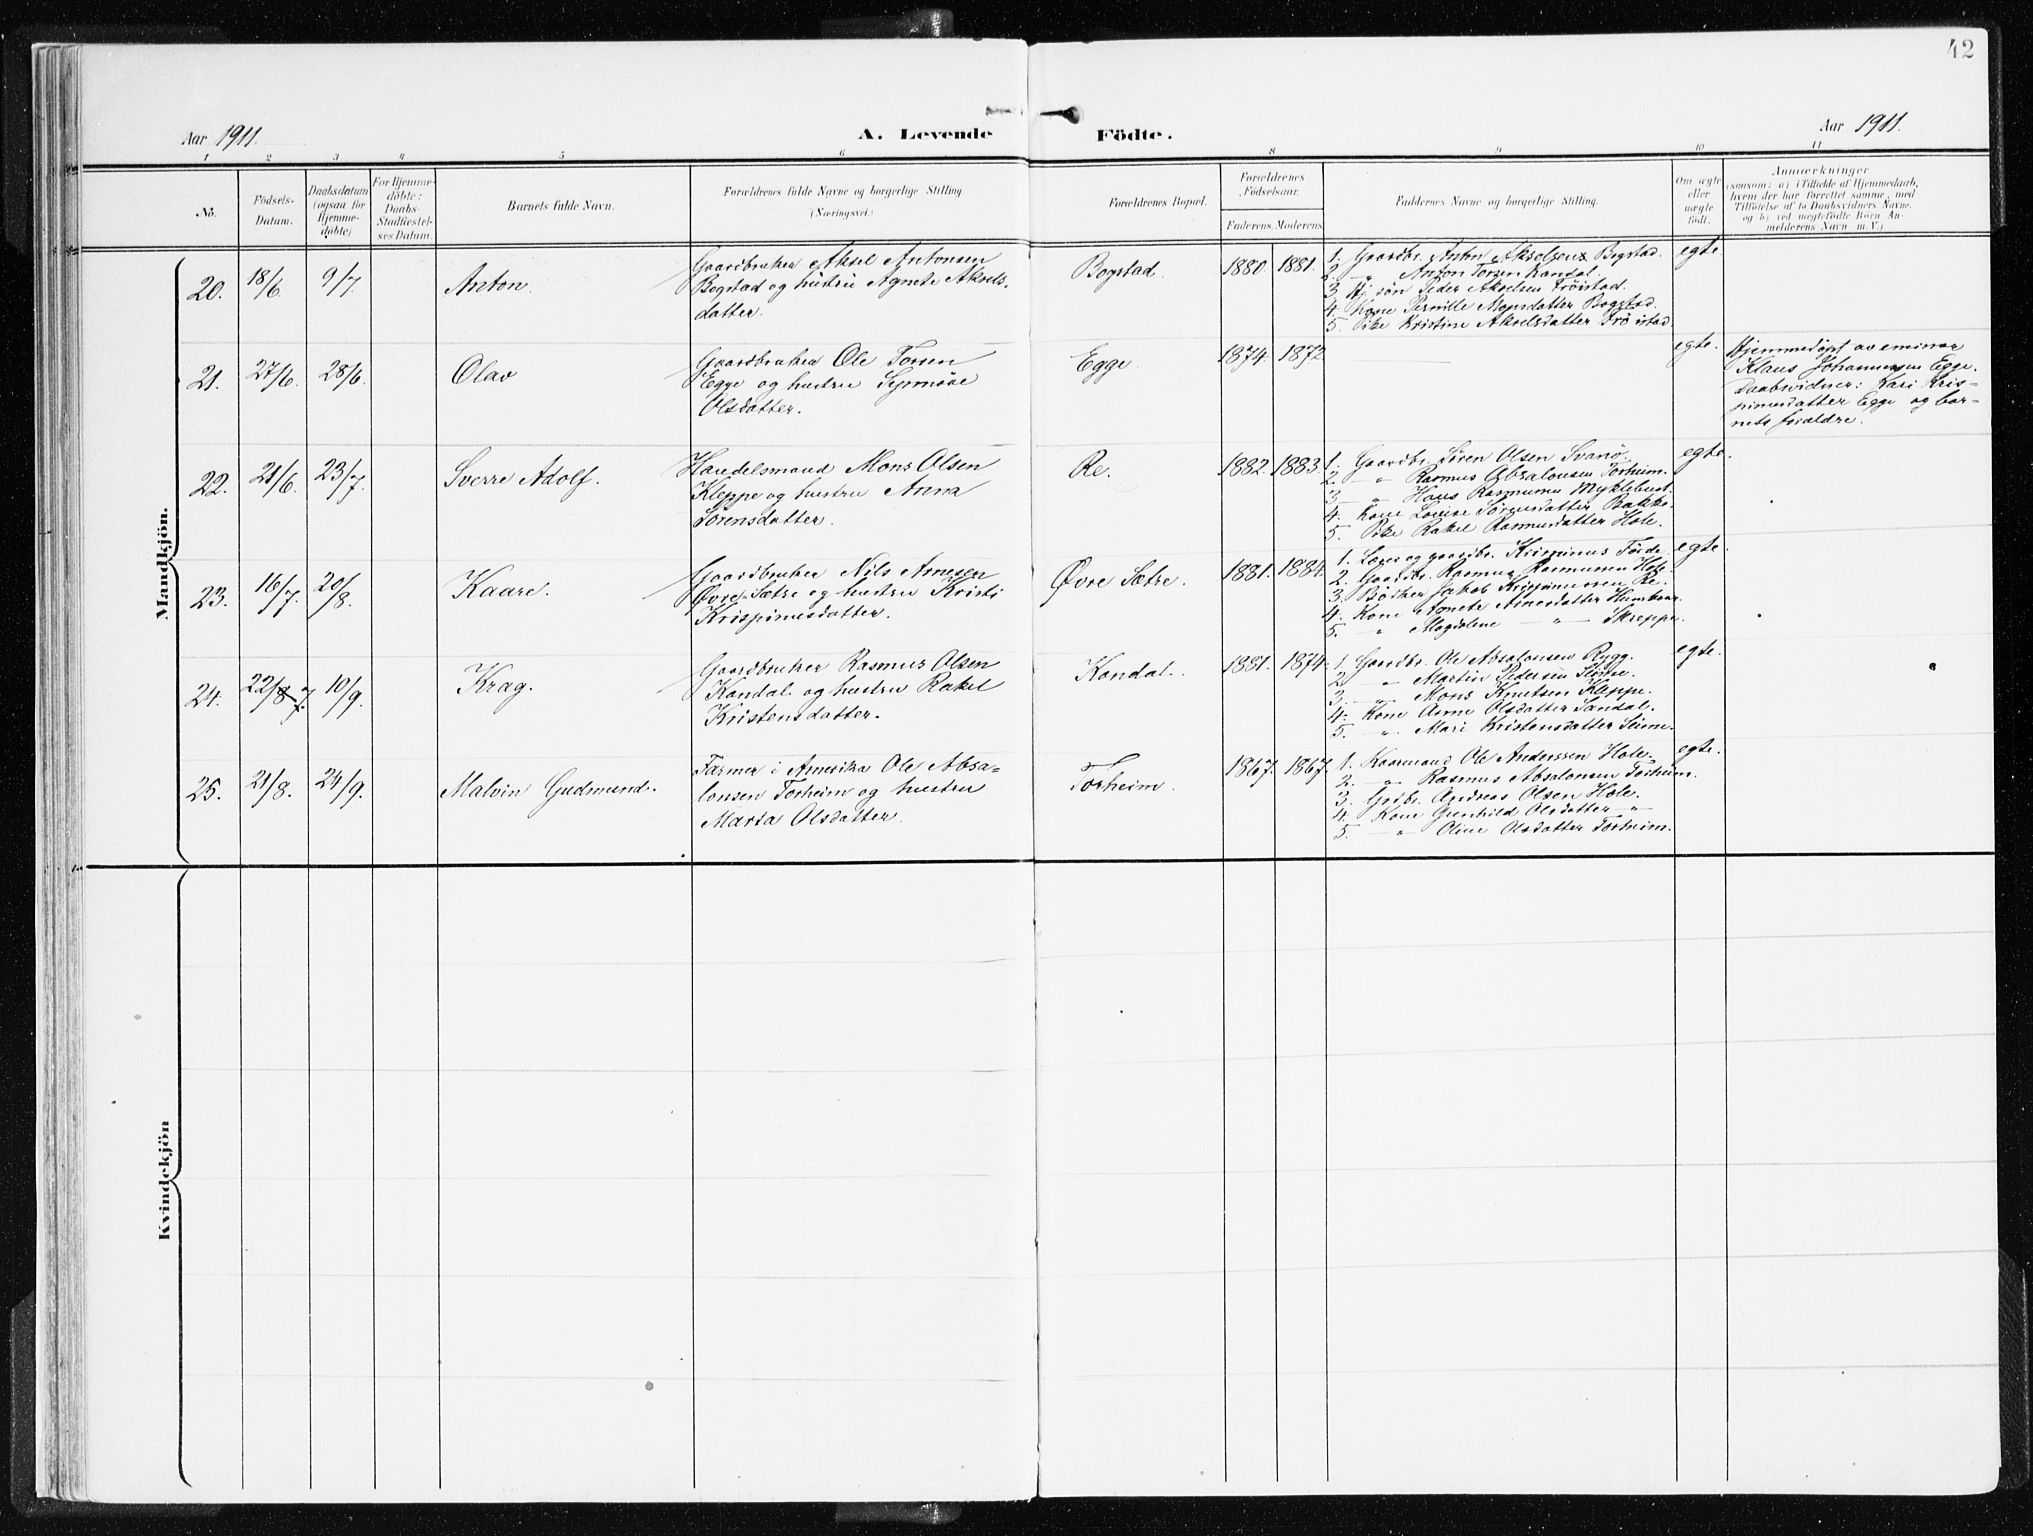 42
Aar 1911.
A. Levende Födte.
Aar 1911.
1 2 3 4 5 6 8 9 10 11
No.
Födsels-
Datum.
Daabsdatum
(ogsaa for
Hjemme-
döbte)
For Hjemme-
döbte:
Daabs-
Stadfæstel-
ses Datum.
Barnets fulde Navn.
Forældrenes fulde Navne og borgerlige Stilling.
(Næringsvei.)
Forældrenes Bopæl.
Forældrenes
Födselsaar.
Faderens. Moderens.
Faddernes Navne og borgerlige Stilling.
Om ægte
eller
uægte
födt.
Anmærkninger
(saasom: a) i Tilfælde af Hjemmedaab,
hvem der har forrettet samme, med
Tilföielse af to Daabsvidners Navne,
og b) ved uægtefödte Börn An-
melderens Navn m. V.)
Mandkjön.
20. 18/6. 9/7. Anton.
Gaardbruker Aksel Antonsen
Bogstad og hustru Agnete Aksels-
datter.
Bogstad. 1880. 1881.
1. Gaardbr. Anton Akselsen Bogstad.
2. " Anton Torsen Kandal.
3. søn Peder Akselsen Trøistad.
4. Kone Pernille Monsdatter Bogstad.
5. Pike Kristine Akselsdatter Trøistad.
egte.
21. 27/6. 28/6. Olav
Gaardbruker Ole Torsen
Egge og hustru Synnøve
Olsdatter.
Egge. 1874. 1872
egte.
Hjemmedøpt av
Klaus Johannessen Egge.
Daabsvidner: Kari Kris-
pinusdatter Egge og bar-
nets forældre.
22. 21/6. 23/7. Sverre Adolf.
Handelsmand Mons Olsen
Kleppe og hustru Anna
Sørensdatter.
Re. 1882. 1883.
1. Gaardbr. Søren Olsen Svanø.
2. " Rasmus Absalonsen Torheim.
3. " Hans Rasmussen Myklebust.
4. Kone Lovise Sørensdatter Bakke.
5. Pike Rakel Rasmusdatter Hole.
egte.
23. 16/7. 20/8. Kaare.
Gaardbruker Nils Arnesen
Øvre-Sætre og hustru Kristi
Krispinusdatter.
Øvre Sætre. 1881. 1884.
1. Lærer og gaardbr. Førde.
2. Gaardbr. Rasmus Rasmussen Hole.
3. Bødker Jakob Krispinussen Re.
4. Kone Agnete Arnesdatter
5. " Magdalene — " — Skreppe.
egte.
24. 22/8 7. 10/9. Krag.
Gaardbruker Rasmus Olsen
Kandal og hustru Rakel
Kristensdatter.
Kandal. 1881. 1874.
1. Gaardbr. Ole Absalonsen Rygg.
2. " Martin Pedersen
3. " Mons Knutsen Kleppe.
4. Kone Anne Olsdatter Sandal.
5. " Mari Kristensdatter Seime.
egte.
25. 21/8. 24/9. Malvin Gudmund.
Farmer i Amerika Ole Absa-
lonsen Torheim og hustru
Marta Olsdatter.
Torheim. 1867. 1867.
1. Kaarmand Ole Anderssen Hole.
2. " Rasmus Absalonsen Torheim.
3. Grdbr. Andreas Olsen Hole.
4. Kone Gunhild Olsdatter "
5. " Oline Olsdatter Torheim.
egte.
Kvindekjön